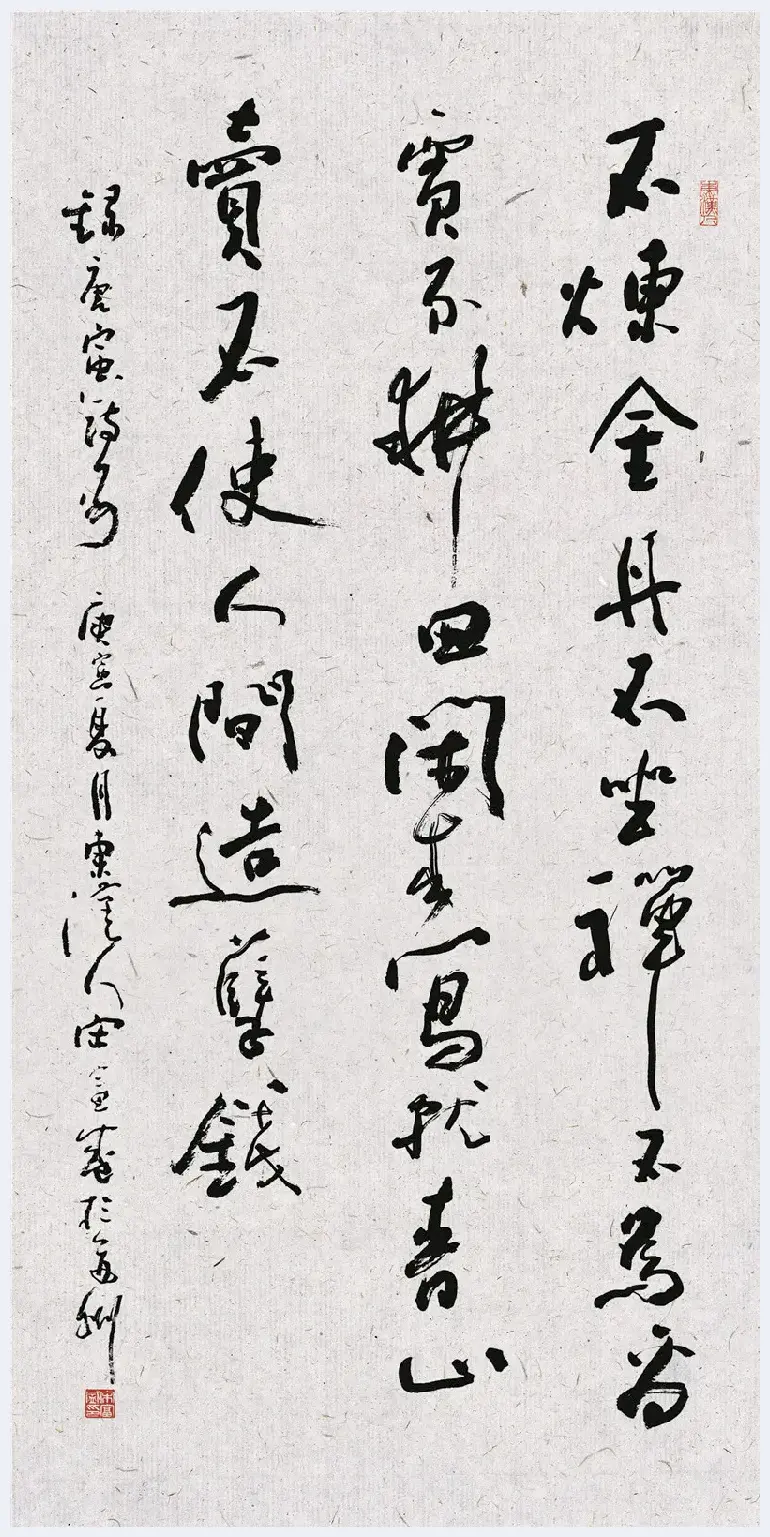 不煉金丹不坐禪不為商
賈不耕田閑來寫就青山
賣不使人間造孽錢
錄唐寅詩一首 庚寅夏月東漢人宋於